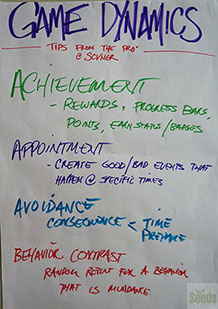 GAME DYNAMICS
TIPS FROM THE PROS
@ SCVNGR
ACHIEVEMENT
- REWARDS, PROGRESS BARS,
POINTS, EARN STATUS / BADGES
APPOINTMENT
- CREATE GOOD/BAD EVENTS THAT
HAPPEN @ SPECIFIC TIMES
AVOIDANCE
CONSEQUENCE < TIME
BEHAVIOR CONTRAST
RANDOM RESULT FOR A BEHAVIOR
THAT IS MUNDANE
Seeds